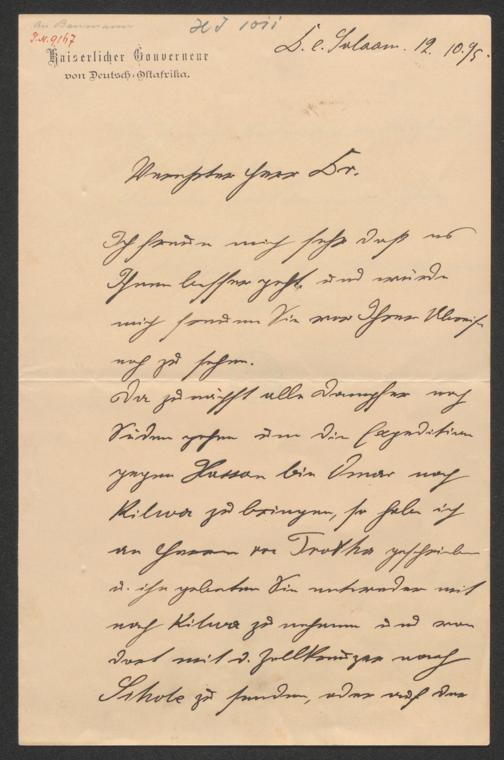 An Baumann
HJ 1011
I.N. 9167
Kaiserlicher Gouverneur
von Deutsch-Ostafrika.
D. e. Salaam. 12. 10. 95.
Verehrter Herr Dr.
Ich freue mich sehr daß es
Ihnen besser geht, und würde
mich freuen Sie vor Ihrer Abreise
noch zu sehen.
Da zunächst alle Dampfer nach
Süden gehen um die Expedition
gegen Hassan bin Omar nach
Kilwa zu bringen, so habe ich
an Herrn von Trotha geschrieben
u. ihn gebeten Sie entweder mit
nach Kilwa zu nehmen und von
dort mit d. Zollkreuzer nach
zu senden, oder auf der